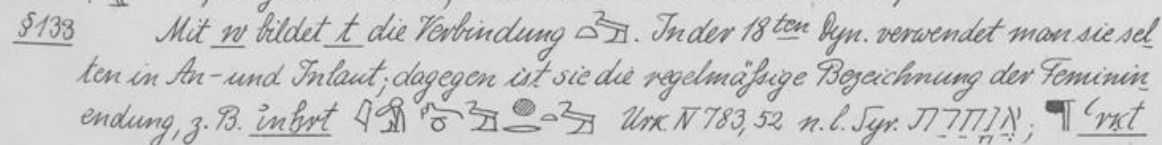 §133 Mit w bildet t die Verbindung. In der 18ten Dyn. verwendet man sie sel-
ten in An- und Inlaut; dagegen ist sie die regelmäßige Bezeichnung der Feminin-
endung, z. B. Urk. IV 783, 52 n. l. Syr. ¶ ʿrkt